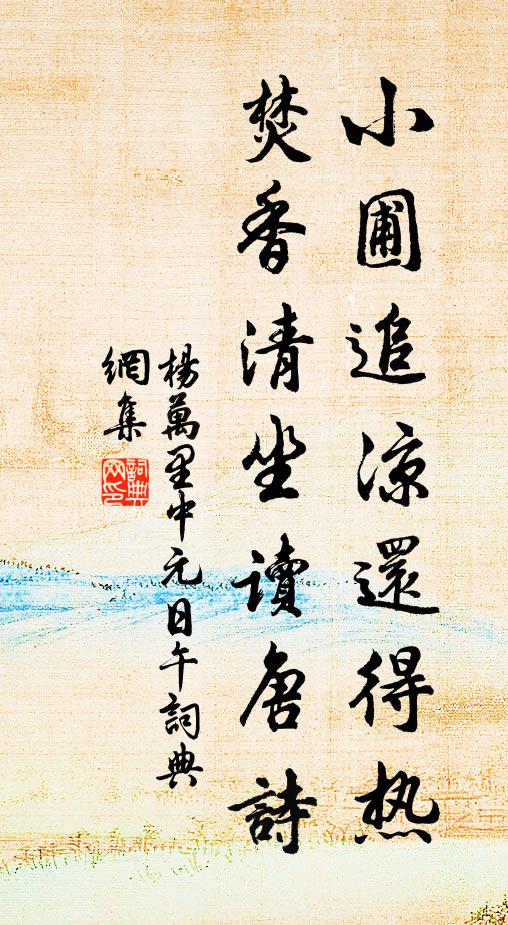 小圃追涼還得热
焚香清坐讀唐詩
楊萬里中元日午詞典
網集
詞典
网印